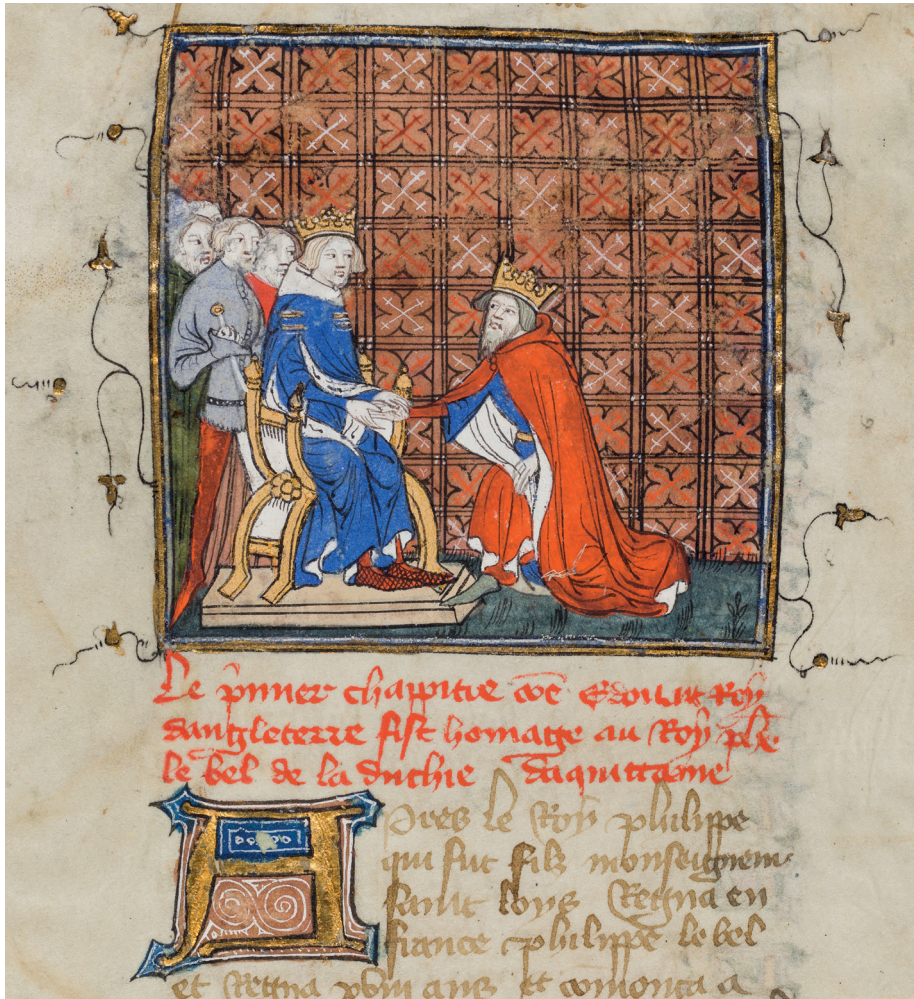 Le p̄mier chappitre cōe Edouart Roy
dangleterre fist homage au Roy phē
le bel de la duchie daquittaine
Apres le Roy philippe
qui fut filz monseigneur
saint loys Regna en
france philippe le bel
et Regna xxviii ans et comenca a